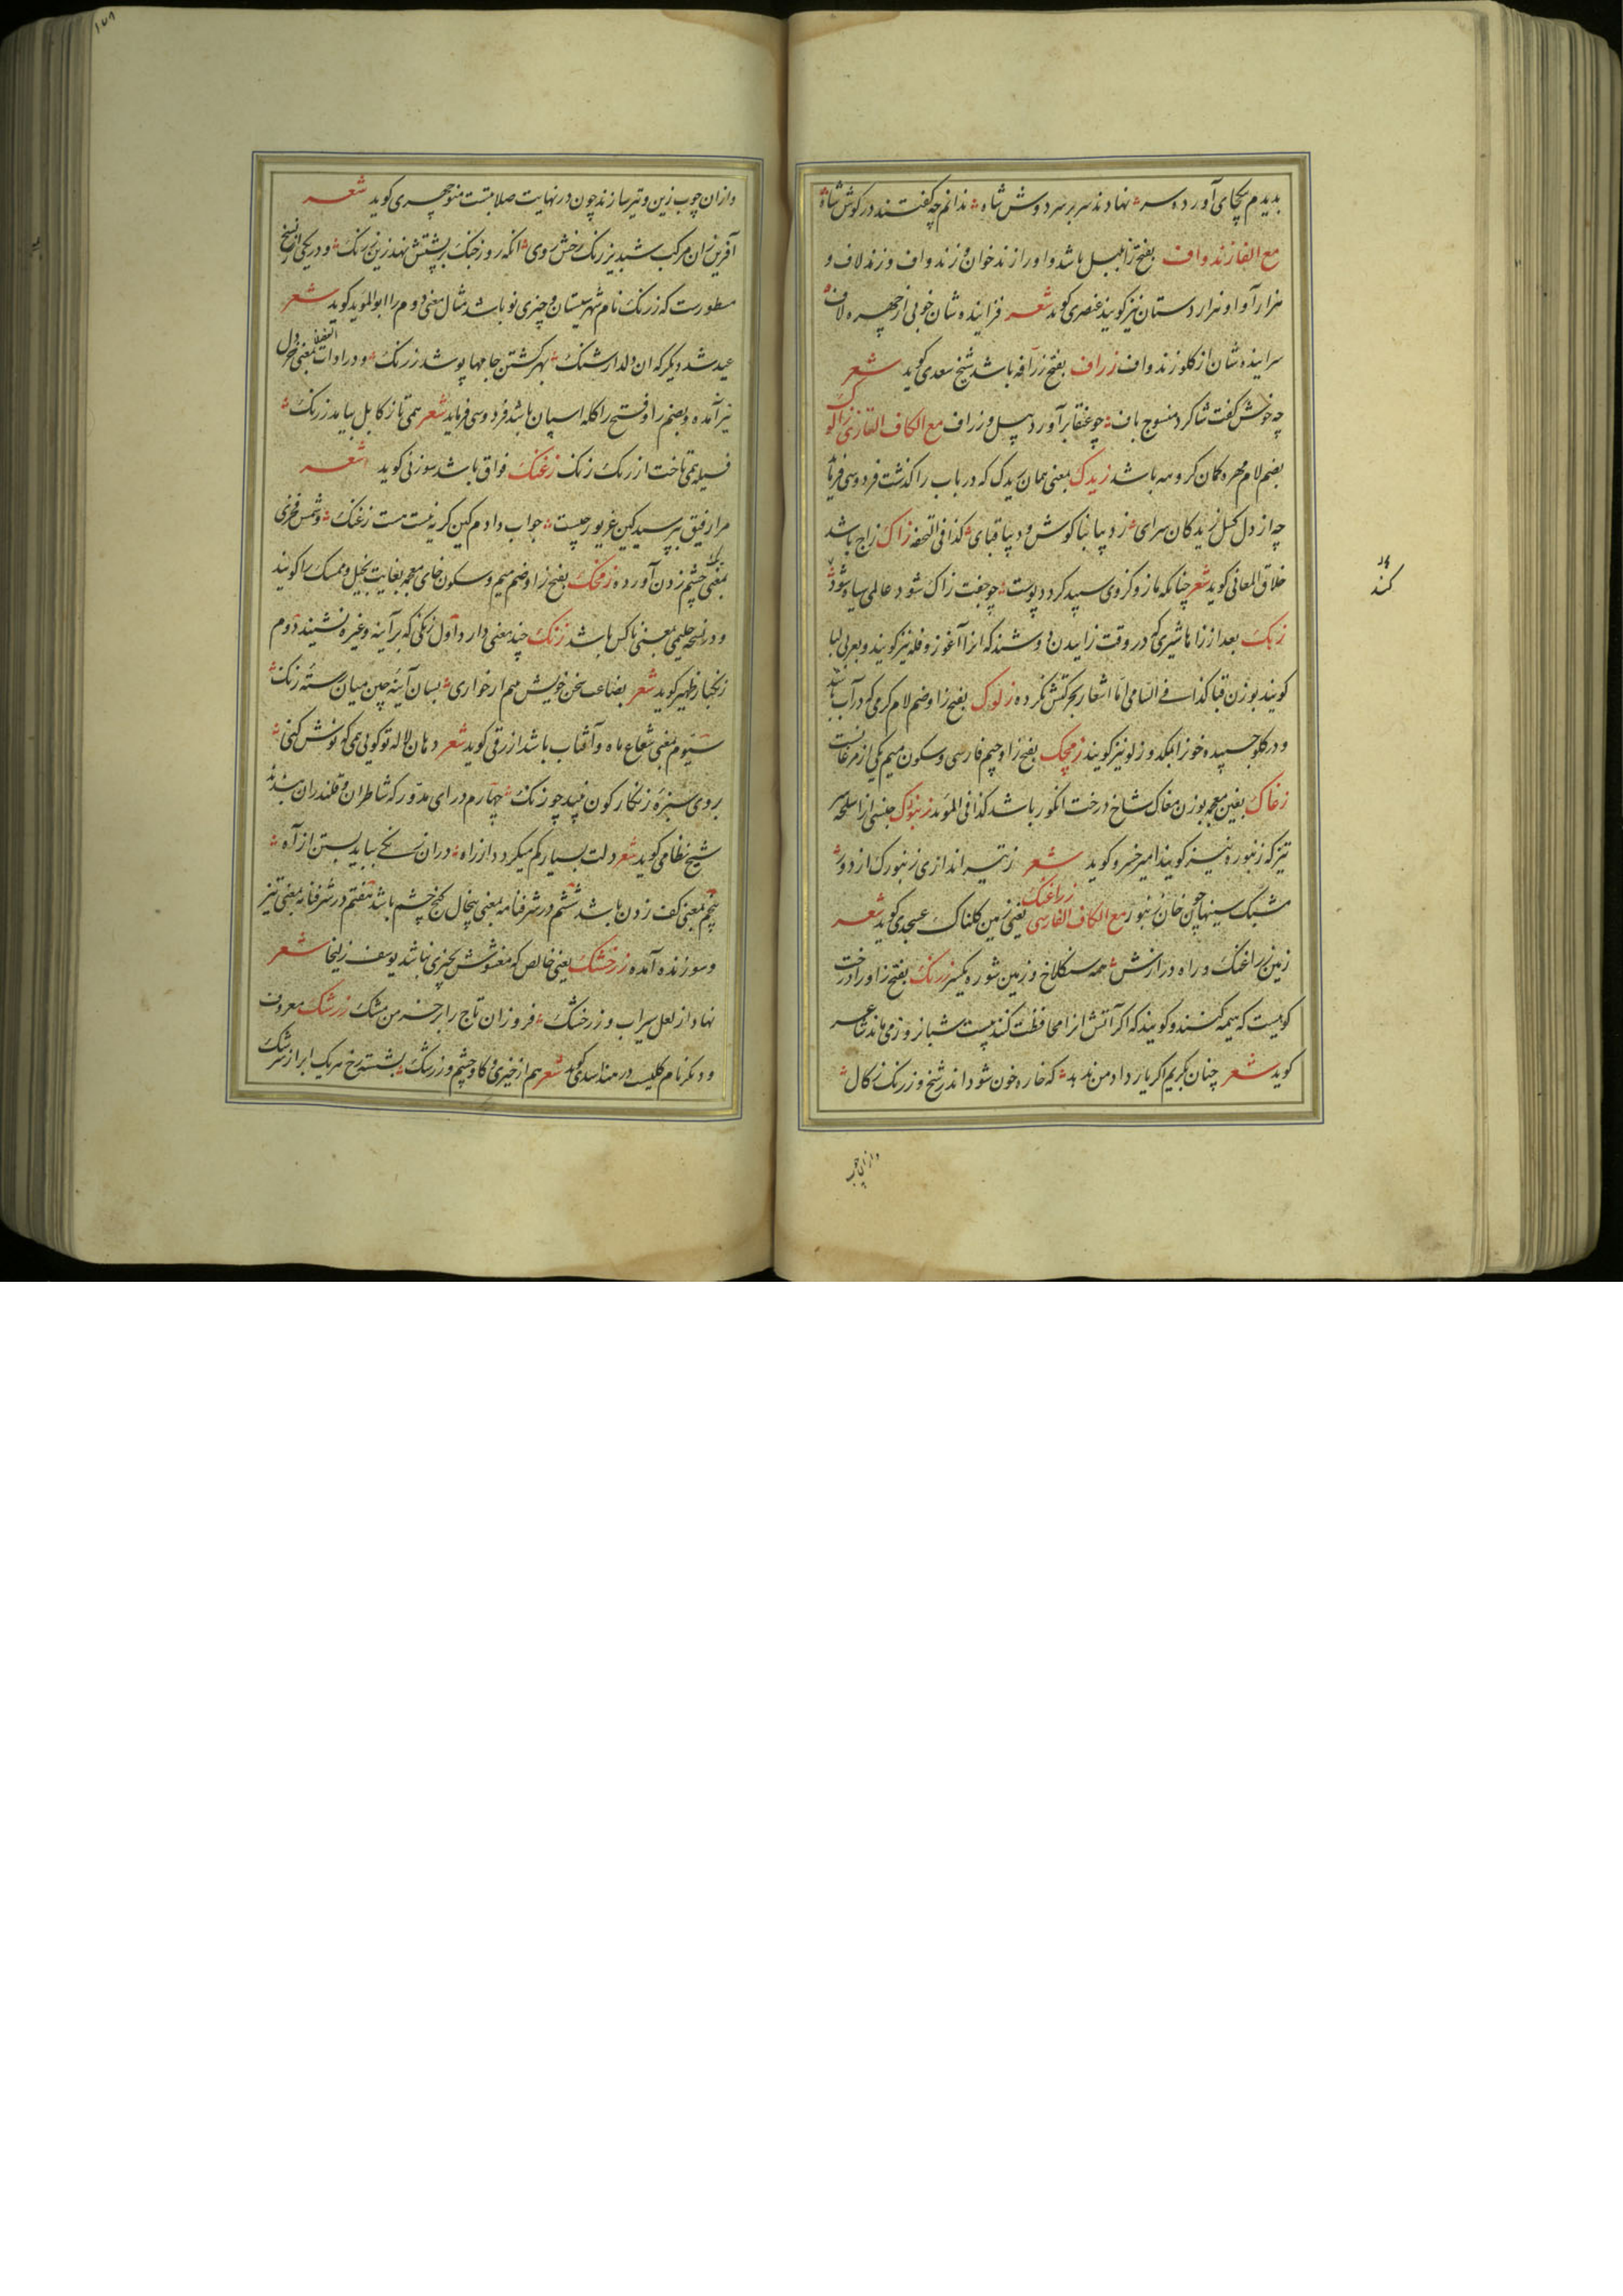 بدیدم بجای آورده سر نهادند سر بر سر دوش شاه ندانم چه گفتند در گوش شاه
مع الفا زندواف بفتح زا بلبل باشد و او را زندخوان و زندواف و زندلاف و
هزارآوا و هزاردستان نیز گویند عنصری گوید شعر فزاینده شان خوبی از چهره لاف
سراینده شان از گلو زندواف زراف بفتح زرافه باشد شیخ سعدی گوید شعر
چه خوش گفت شاگرد منسوج باف چو عنقا برآورد پیل و زراف مع الکاف التازی
بضم لام مهره کمان گروهه باشد زیدک بمعنی همان ریدک که در باب را گذشت فردوسی
چه از دل گسل ریدکان سرای ز دیبا بناگوش و دیبا قبای کذا فی التحفه زاک زاج باشد
خلاق المعانی گوید شعر چنانکه مازو کزوی سپید گردد پوست چو جفت زاک شود عالمی سیاه شود
زبک بعد از زا با شیری که در وقت زاییدن دوشند که انرا آغوز و فله نیز گویند و بعربی لبا
گویند بوزن قبا کذا فی السامی اما اشعار بحرکتش نکرده زلوک بفتح زا و ضم لام کرمی که در آب باشد
و در گلو چسپیده خون را بمکد و زلو نیز گویند زمچک بفتح زا و جیم فارسی و سکون میم یکی از مرغانست
زغاک بغین معجمه بوزن مغاک شاخ درخت انگور باشد کذا فی المؤید زنبورک جنسی از اسلحه
تیز که زنبوره نیز گویند امیر خسرو گوید شعر ز تیر اندازی زنبورک از دور
مشبک سینها چون خان زنبور مع الکاف الفارسی زراغنک یعنی زمین کلناک عسجدی گوید شعر
زمین زراغنک و راه درازش همه سنگلاخ و زمین شوره یکسر زرنک بفتح زا و را درخت
کوهیست که هیمه کنند و گویند که اگر آتش انرا محافظت کنند بیست شبانروز می ماند شاعر
گوید شعر چنان بگریم اگر یار داد من ندهد که خاره خون شود اندر شخ و زرنک زکال
و از ان چوب زین و تیر سازند چون در نهایت صلابتست منوچهری گوید شعر
آفرین زان مرکب شبدیز رنک رخش روی انکه روز جنک بر پشتش نهد زین زرنک و در یکی از نسخ
مسطورست که زرنک نام شهر سیستان و چیزی نو باشد مثال معنی دوم را ابوالموید گوید شعر
عید شد دیگر که ان دلدار شنک بهر کشتن جامها پوشد زرنک و در ادات الفضلا بمعنی خردل
نیز آمده و بضم را و فتح را کله اسپان باشد فردوسی فرماید شعر همی تاز کابل بیامد زرنک
فسیله همی تاخت از رنک زنک زغنک فواق باشد سوزنی گوید شعر
مرا رفیقی بپرسید کین غریو ز چیست جواب دادم کین گریه نیست هست زغنک و شمس فخری
بمعنی چشم زدن آورده زمخک بفتح زا و ضم میم و سکون خای معجمه بغایت بخیل و ممسک را گویند
و در نسخه حلیمی بمعنی ناکس باشد زنک چند معنی دارد اول زنکی که بر آینه و غیره نشیند دوم
زنکبار ظهیر گوید شعر بضاعت سخن خویش بینم از خواری بسان آینه چین میان رسته زنک
سیوم بمعنی شعاع ماه و آفتاب باشد ازرقی گوید شعر دهان لاله تو گویی همی که نوش کنی
بروی سبزه زنکار گون نبید چو زنک چهارم درای مدور که شاطران و قلندران بندند
شیخ نظامی گوید شعر دلت بسیار کم میکردد از راه دران زنکی بباید بستن از آه
پنجم بمعنی کف زدن باشد ششم در شرفنامه بمعنی پنجال کنج چشم باشد هفتم در شرفنامه بمعنی تیز
و سوزنده آمده زرخشک یعنی خالص که مغشوش بچیزی نباشد یوسف زلیخا شعر
نهاد از لعل سیراب و زر خشک فروزان تاج را بر خرمن مشک زرشک معروف
و دیگر نام گلیست در هند اسدی گوید شعر هم از خیری و کاوچشم و زرشک بشسته رخ هر یک ابر از سرشک
و از ان چوب
کند
۱۷۸